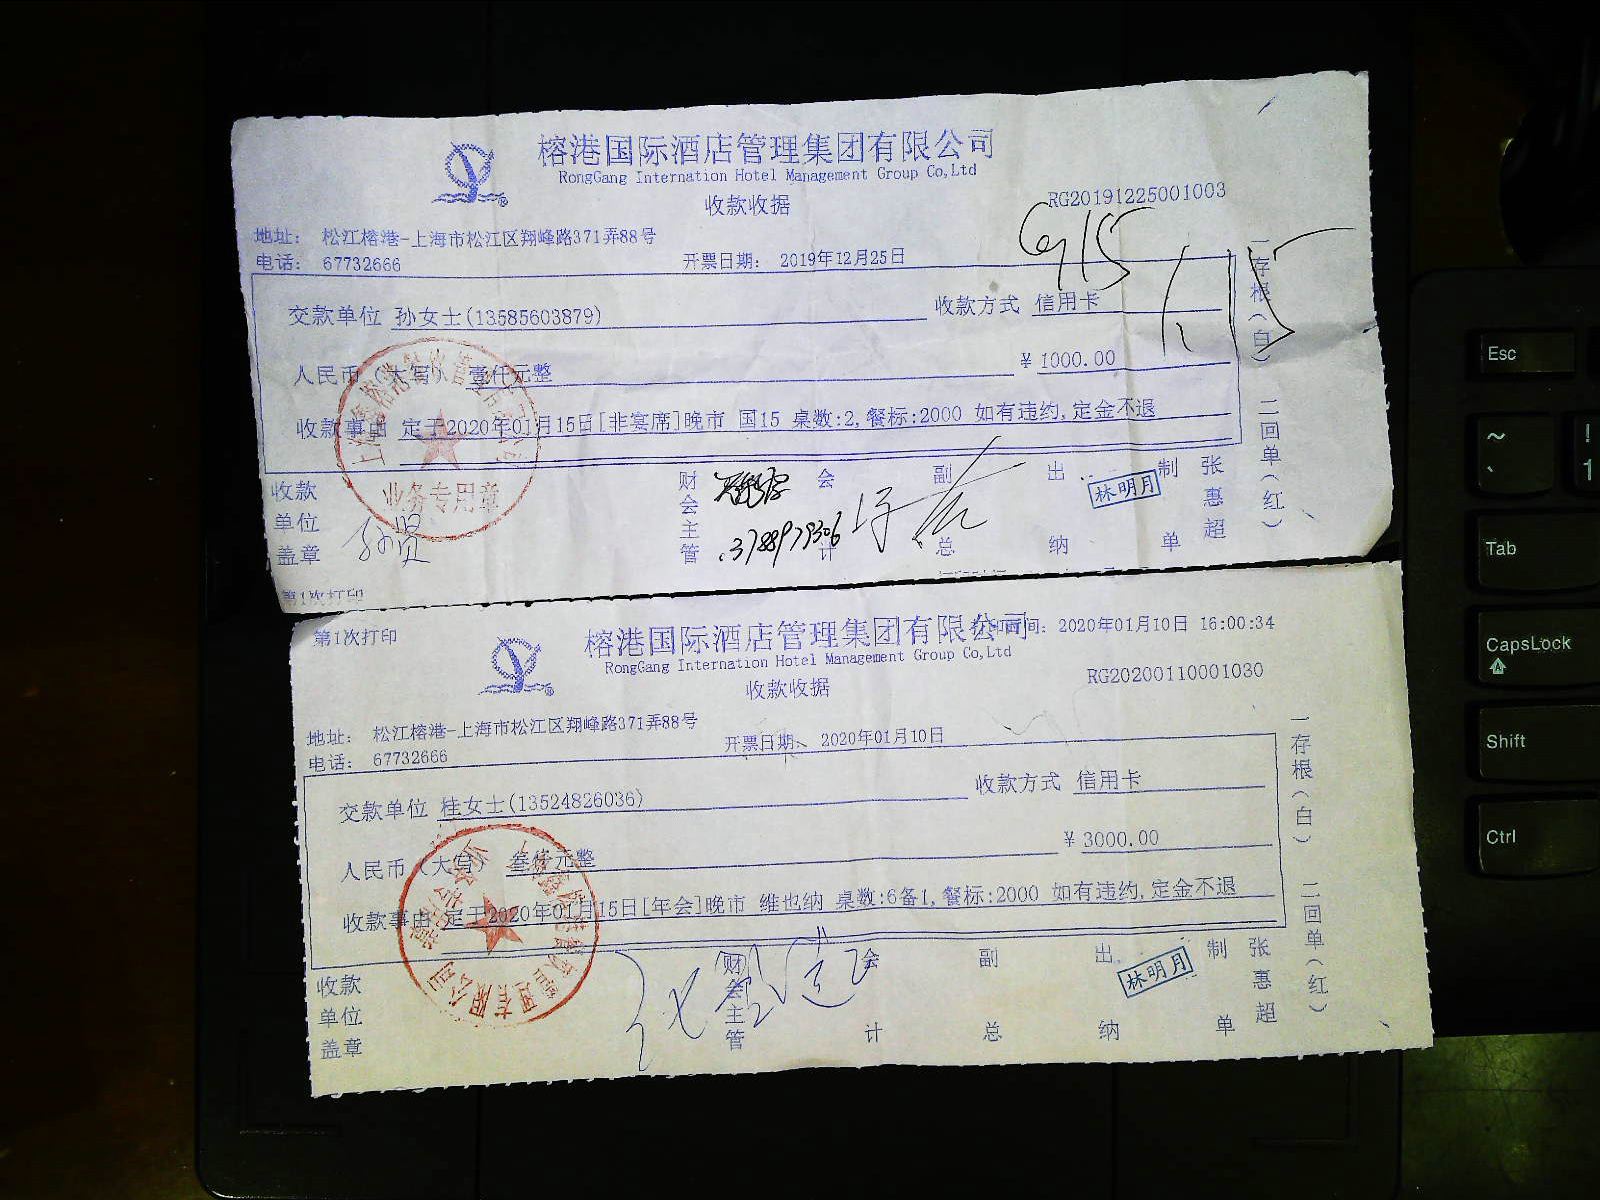 榕港国际酒店管理集团有限公司
RongGang Internation Hotel Management Group Co,Ltd
收款收据
RG20191225001003
地址： 松江榕港-上海市松江区翔峰路371弄88号
电话： 67732666 开票日期： 2019年12月25日
交款单位 孙女士(13585603879) 收款方式 信用卡
人民币（大写） 壹仟元整 ￥ 1000.00
收款事由 定于2020年01月15日[非宴席]晚市 国15 桌数:2,餐标:2000 如有违约,定金不退
收款单位盖章 财会主管 会计 副总 出纳 林明月 制单 张惠超
业务专用章
一存根（白） 二回单（红）
第1次打印
第1次打印 榕港国际酒店管理集团有限公司 2020年01月10日 16:00:34
RongGang Internation Hotel Management Group Co,Ltd
收款收据
RG20200110001030
地址： 松江榕港-上海市松江区翔峰路371弄88号
电话： 67732666 开票日期： 2020年01月10日
交款单位 桂女士(13524826036) 收款方式 信用卡
人民币（大写） 叁仟元整 ￥ 3000.00
收款事由 定于2020年01月15日[年会]晚市 维也纳 桌数:6备1,餐标:2000 如有违约,定金不退
收款单位盖章 财会主管 会计 副总 出纳 林明月 制单 张惠超
一存根（白） 二回单（红）
Esc
~
!
1
Tab
CapsLock
Shift
Ctrl